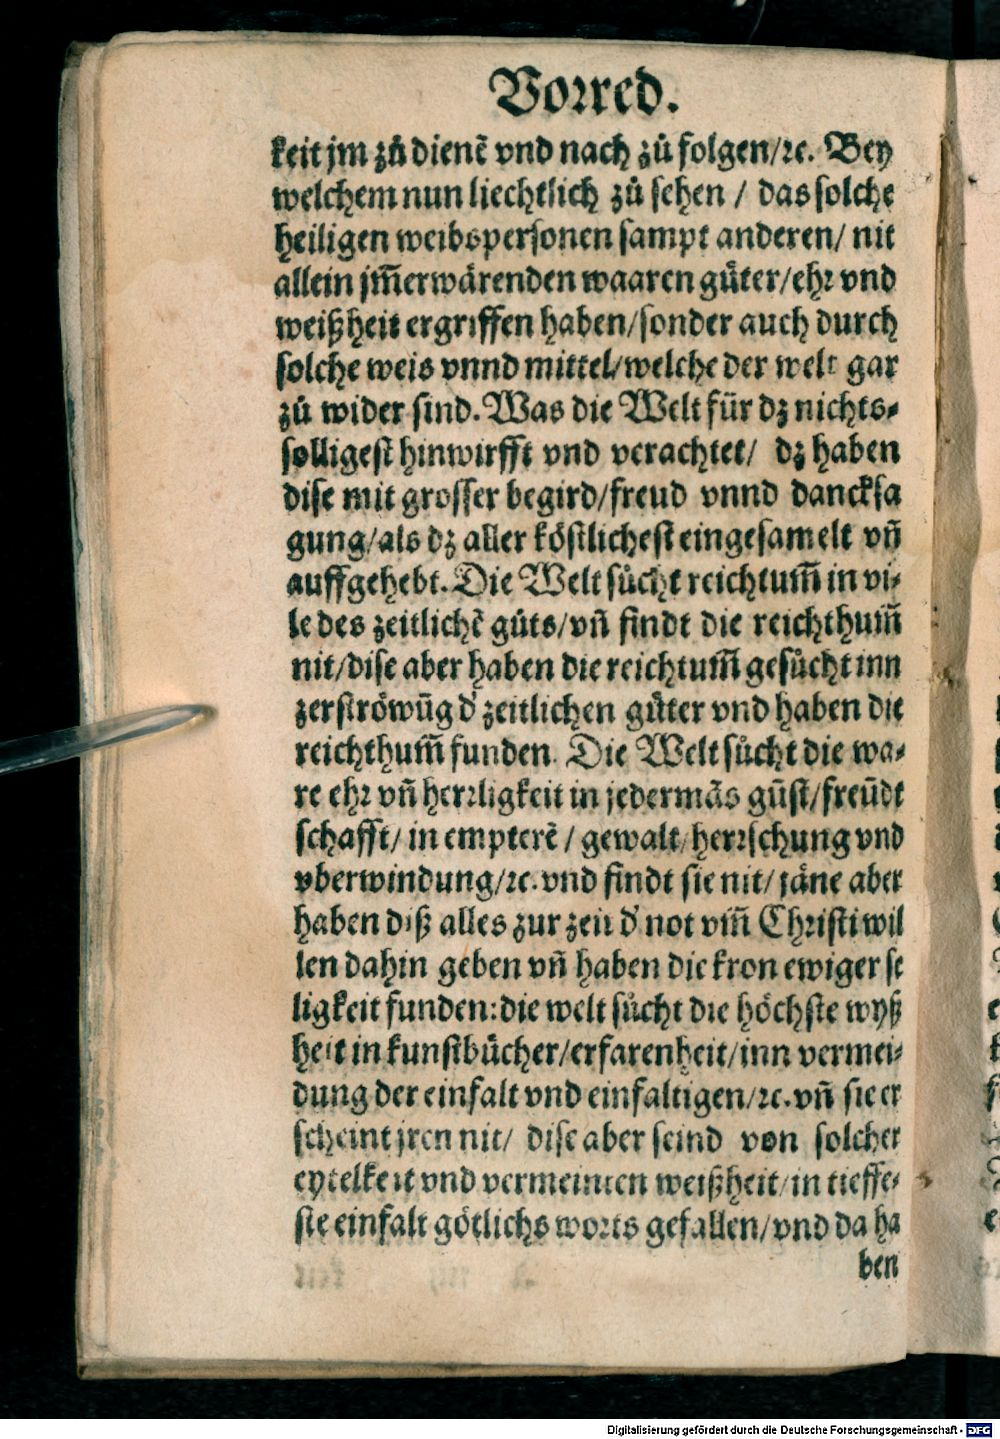 Vorred.
keit jm zů dienẽ vnd nach zů folgen/ꝛc. Bey
welchem nun liechtlich zů sehen / das solche
heiligen weibspersonen sampt anderen/ nit
allein jm̃erwärenden waaren güter/ehr vnd
weißheit ergriffen haben/sonder auch durch
solche weis vnnd mittel/welche der welt gar
zů wider sind. Was die Welt für dz nichts⸗
solligest hinwirfft vnd verachtet/ dz haben
dise mit grosser begird/freud vnnd dancksa
gung/als dz aller köstlichest eingesamelt vñ
auffgehebt. Die Welt sůcht reichtum̃ in vi⸗
le des zeitlichẽ gůts/vñ findt die reichthum̃
nit/dise aber haben die reichtum̃ gesůcht inn
zerströwũg d' zeitlichen güter vnd haben die
reichthum̃ funden. Die Welt sůcht die wa⸗
re ehr vñ herrligkeit in jedermãs gũst/freũdt
schafft/ in empterẽ / gewalt/herrschung vnd
vberwindung/ꝛc. vnd findt sie nit/ jäne aber
haben diß alles zur zeit d' not vm̃ Christi wil
len dahin geben vñ haben die kron ewiger se
ligkeit funden: die welt sůcht die höchste wyß
heit in kunstbücher/erfarenheit/inn vermei⸗
dung der einfalt vnd einfaltigen/ꝛc. vñ sie er
scheint jren nit/ dise aber seind von solcher
eytelkeit vnd vermeinten weißheit/in tieffe⸗
ste einfalt götlichs worts gefallen/vnd da ha
ben
Digitalisierung gefördert durch die Deutsche Forschungsgemeinschaft - DFG